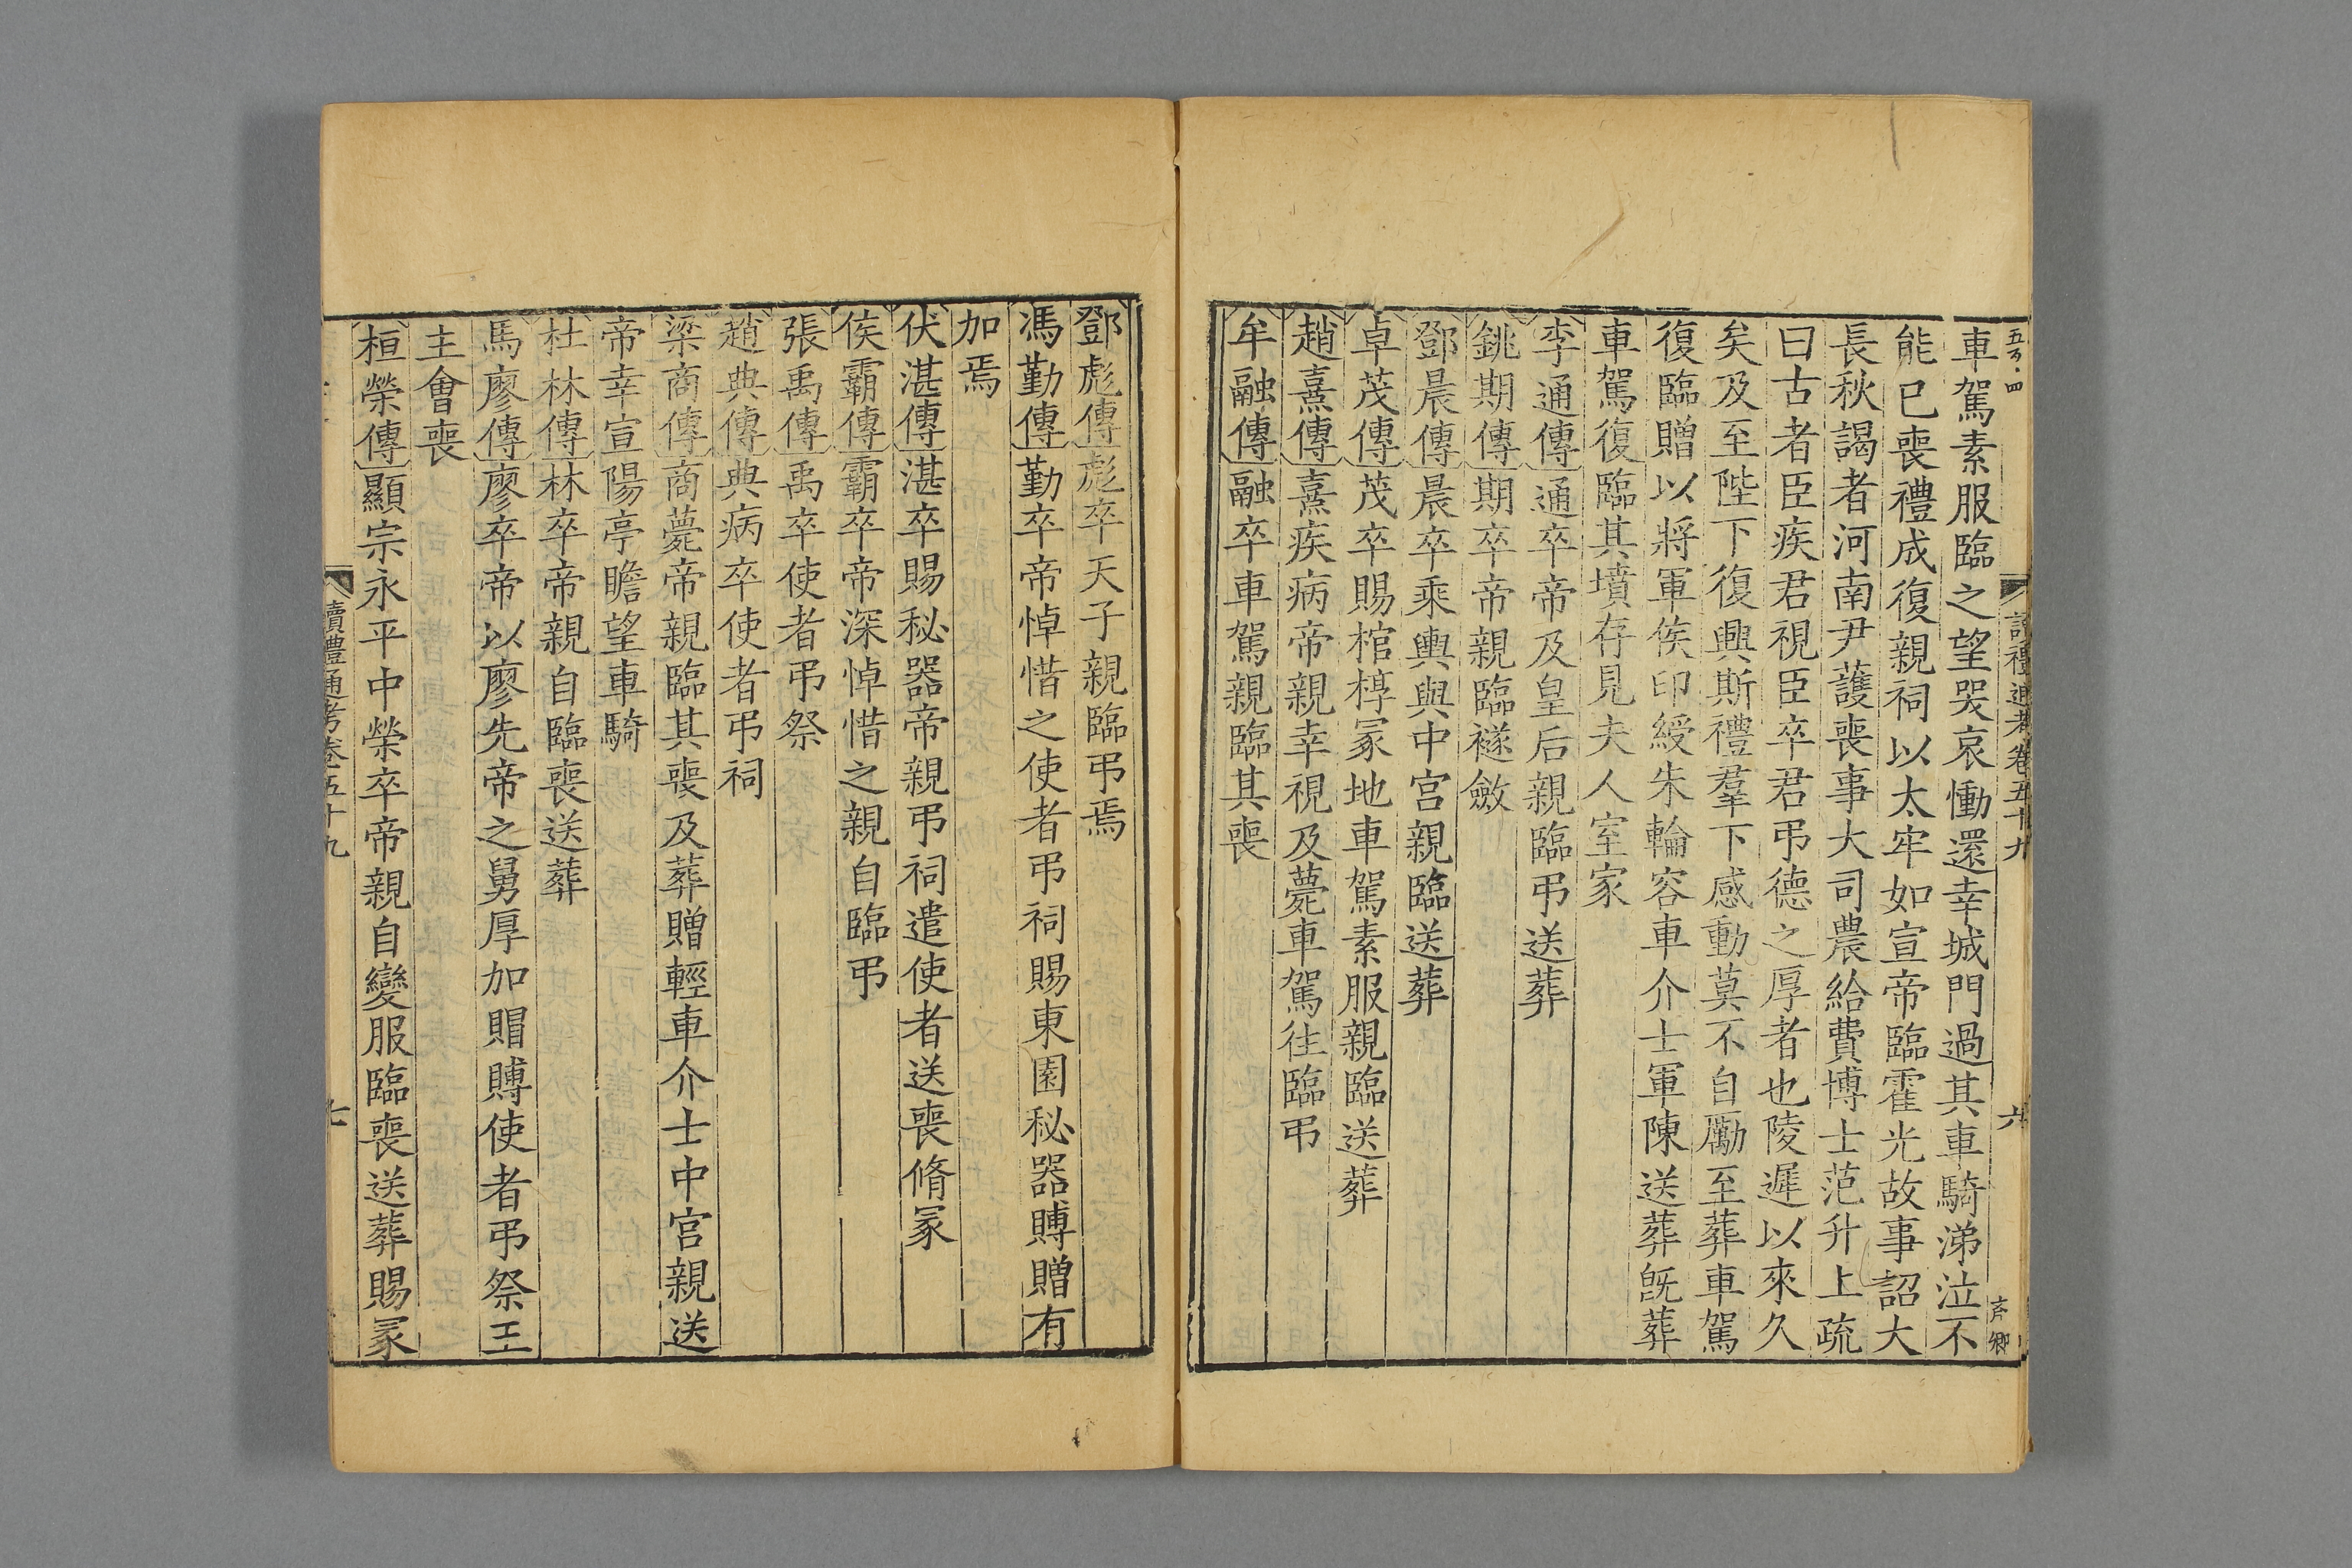 讀禮通考卷五十九
六
車駕素服臨之望哭哀慟還幸城門過其車騎涕泣不
能已喪禮成復親祠以太牢如宣帝臨霍光故事詔大
長秋謁者河南尹護喪事大司農給費博士范升上疏
曰古者臣疾君視臣卒君弔德之厚者也陵遲以來久
矣及至陛下復興斯禮羣下感動莫不自勵至葬車駕
復臨贈以將軍侯印綬朱輪容車介士軍陳送葬旣葬
車駕復臨其墳存見夫人室家
李通傳通卒帝及皇后親臨弔送葬
銚期傳期卒帝親臨襚斂
鄧晨傳晨卒乘輿與中宮親臨送葬
卓茂傳茂卒賜棺椁冢地車駕素服親臨送葬
趙憙傳憙疾病帝親幸視及薨車駕往臨弔
牟融傳融卒車駕親臨其喪
鄧彪傳彪卒天子親臨弔焉
馮勤傳勤卒帝悼惜之使者弔祠賜東園秘器賻贈有
加焉
伏湛傳湛卒賜秘器帝親弔祠遣使者送喪脩冢
侯霸傳霸卒帝深悼惜之親自臨弔
張禹傳禹卒使者弔祭
趙典傳典病卒使者弔祠
梁商傳商薨帝親臨其喪及葬贈輕車介士中宮親送
帝幸宣陽亭瞻望車騎
杜林傳林卒帝親自臨喪送葬
馬廖傳廖卒帝以廖先帝之舅厚加賵賻使者弔祭王
主會喪
桓榮傳顯宗永平中榮卒帝親自變服臨喪送葬賜冢
讀禮通考卷五十九
七